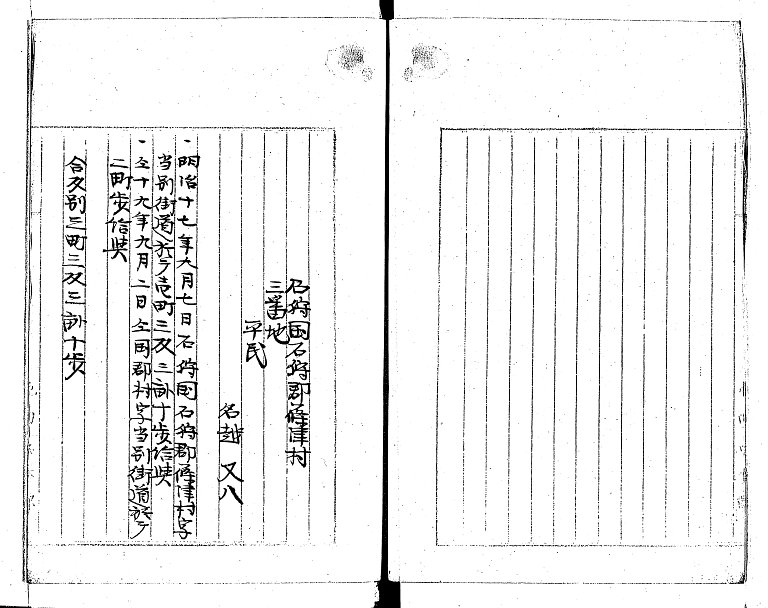 石狩国石狩郡篠津村
三番地
平民
名越又八
、明治十七年六月七日石狩国石狩郡篠津村字
当別街道於テ壱町三反三畝十歩給與
、仝十九年九月二日仝国郡村字当別街道於テ
二町歩給與
合反別三町三反三畝十歩